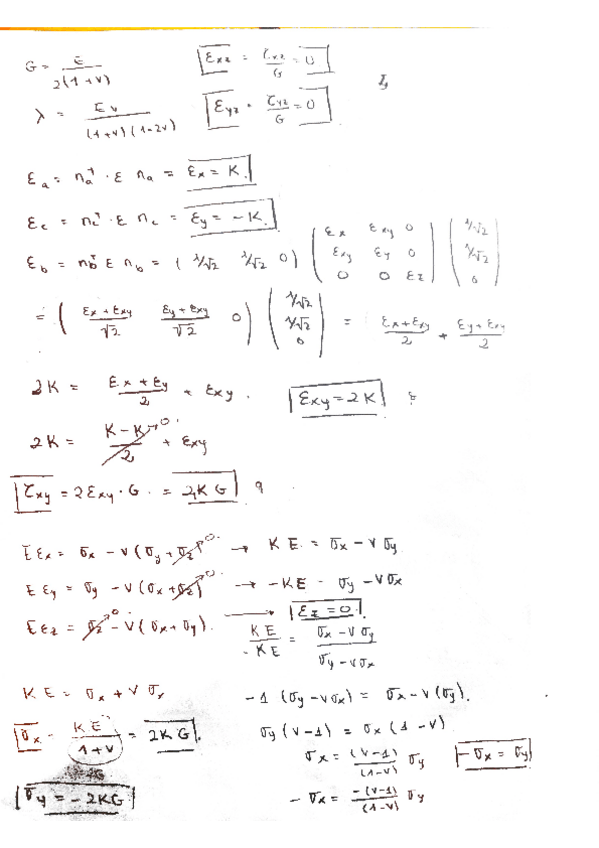 G = E / 2(1+ν)    εxz = τxz / G = 0
λ = Eν / (1+ν)(1-2ν)    εyz = τyz / G = 0
εa = na^t · ε na = εx = K.
εc = nc^t · ε nc = εy = -K.
εb = nb^t ε nb = ( 1/√2  1/√2  0 ) ( εx  εxy  0 ; εxy  εy  0 ; 0  0  εz ) ( 1/√2 ; 1/√2 ; 0 )
= ( (εx + εxy)/√2  (εy + εxy)/√2  0 ) ( 1/√2 ; 1/√2 ; 0 ) = (εx + εxy)/2 + (εy + εxy)/2
2K = (εx + εy)/2 + εxy.    εxy = 2K
2K = (K - K)/2 → 0 + εxy
τxy = 2εxy · G =
E εx = σx - ν(σy + σz) → 0 → KE = σx - ν σy
E εy = σy - ν(σx + σz) → 0 → -KE = σy - νσx
E εz = σz → 0 - ν(σx + σy). → εz = 0
KE / -KE = (σx - ν σy) / (σy - νσx)
KE = σx + ν σx    -1 (σy - νσx) = σx - ν(σy).
σx = KE / 1+ν = 2KG.    σy(ν-1) = σx(1-ν)
σx = (ν-1)/(1-ν) σy    -σx = σy
σy = -2KG    -σx = -(ν-1)/(1-ν) σy